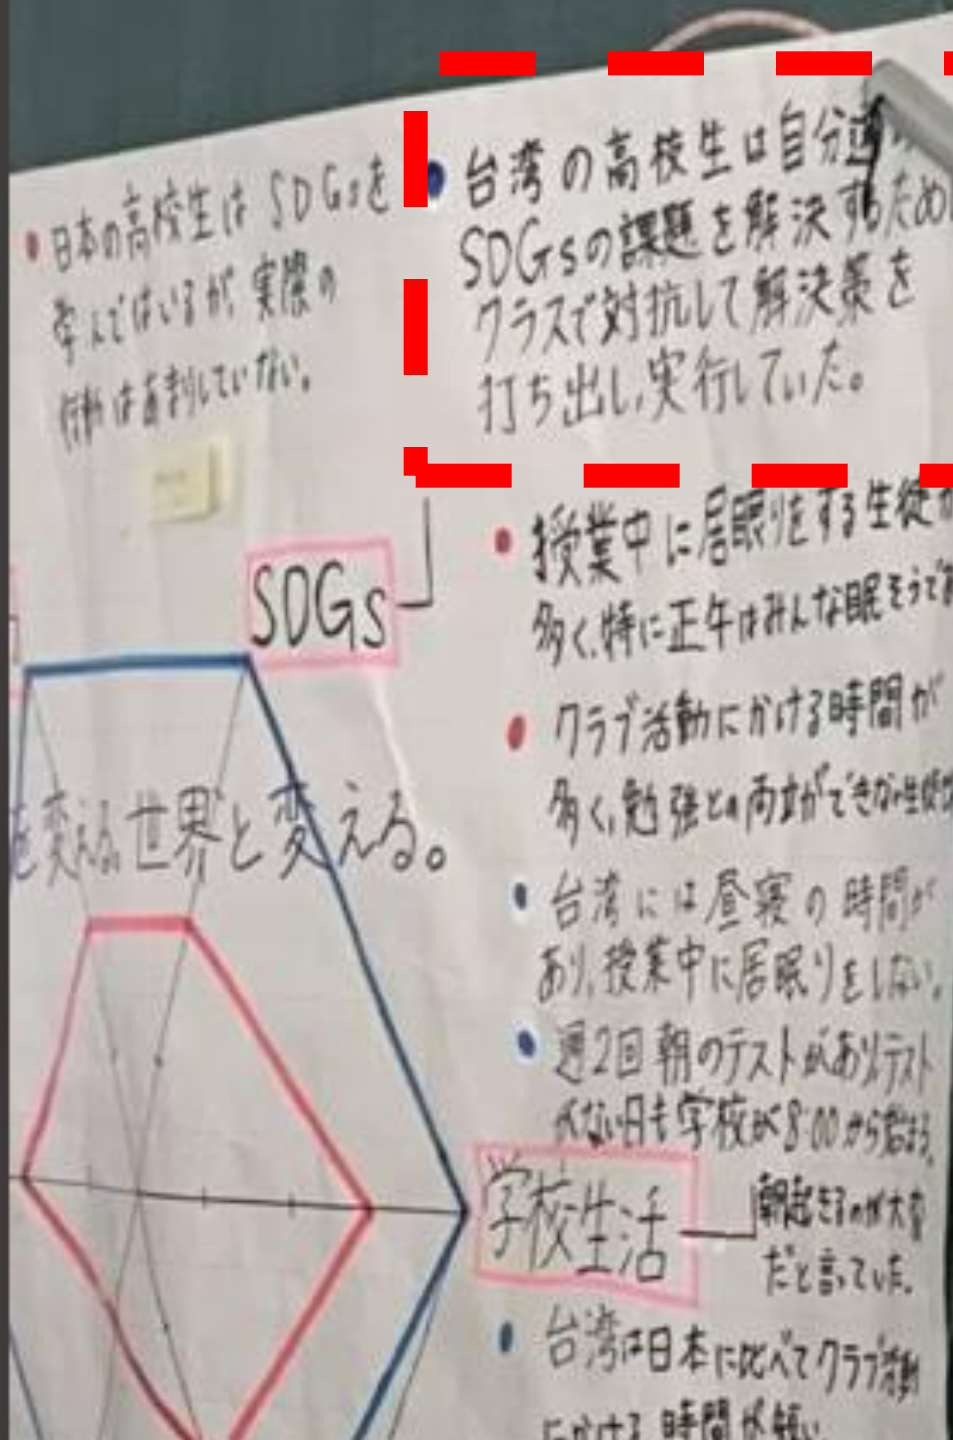 ・日本の高校生は SDGsを
学んではいるが、実際の
行動はあまりしていない。
・台湾の高校生は自分達
SDGsの課題を解決するため
クラスで対抗して解決策を
打ち出し、実行していた。
SDGs
・授業中に居眠りをする生徒が
多く、特に正午はみんな眠そうで
・クラブ活動にかける時間が
多く、勉強との両立ができない生徒
を変える。世界と変える。
・台湾には昼寝の時間が
あり、授業中に居眠りをしない。
・週2回朝のテストがありテスト
がない日も学校が8:00から始まる。
学校生活
朝起きるのが大変
だと言っていた。
・台湾は日本に比べてクラブ活動
にかける時間が短い